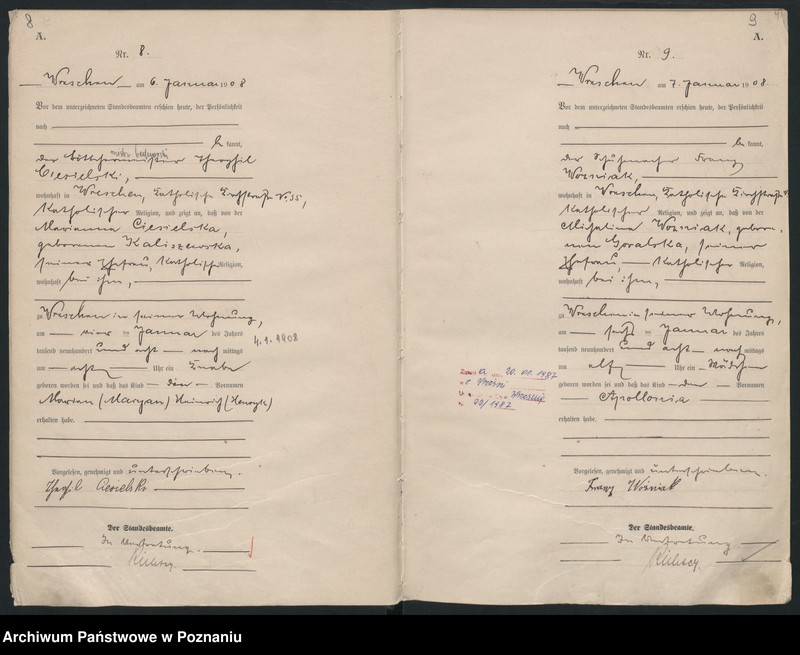 8
A.
Nr. 8.
Wreschen am 6. Januar 1908
Vor dem unterzeichneten Standesbeamten erschien heute, der Persönlichkeit
nach
be kannt,
der Böttchermeister Theophil
Ciesielski,
wohnhaft in Wreschen, Katholische Kirchstraße No 35,
Katholischer Religion, und zeigt an, daß von der
Marianna Ciesielska,
geborenen Kaliszewska,
seiner Ehefrau, Katholischer Religion,
wohnhaft bei ihm,
zu Wreschen in seiner Wohnung,
am vier ten Januar des Jahres
tausend neunhundert und acht nach mittags
4.1.1908
um acht Uhr ein Knabe
geboren worden sei und daß das Kind den Vornamen
Marian (Maryan) Heinrich (Henryk)
erhalten habe.
Vorgelesen, genehmigt und unterschrieben.
Theofil Ciesielski
Der Standesbeamte.
In Vertretung.
9
A.
Nr. 9.
Wreschen am 7. Januar 1908.
Vor dem unterzeichneten Standesbeamten erschien heute, der Persönlichkeit
nach
be kannt,
der Schuhmacher Franz
Wozniak,
wohnhaft in Wreschen, Katholische Kirchstraße
Katholischer Religion, und zeigt an, daß von der
Michalina Wozniak, gebore-
nen Goralska, seiner
Ehefrau, Katholischer Religion,
wohnhaft bei ihm,
zu Wreschen in seiner Wohnung,
am sechs ten Januar des Jahres
tausend neunhundert und acht nach mittags
um elf Uhr ein Mädchen
geboren worden sei und daß das Kind den Vornamen
Apollonia
erhalten habe.
1987
Wrześni
30/1987
Vorgelesen, genehmigt und unterschrieben.
Franz Woźniak
Der Standesbeamte.
In Vertretung
Archiwum Państwowe w Poznaniu